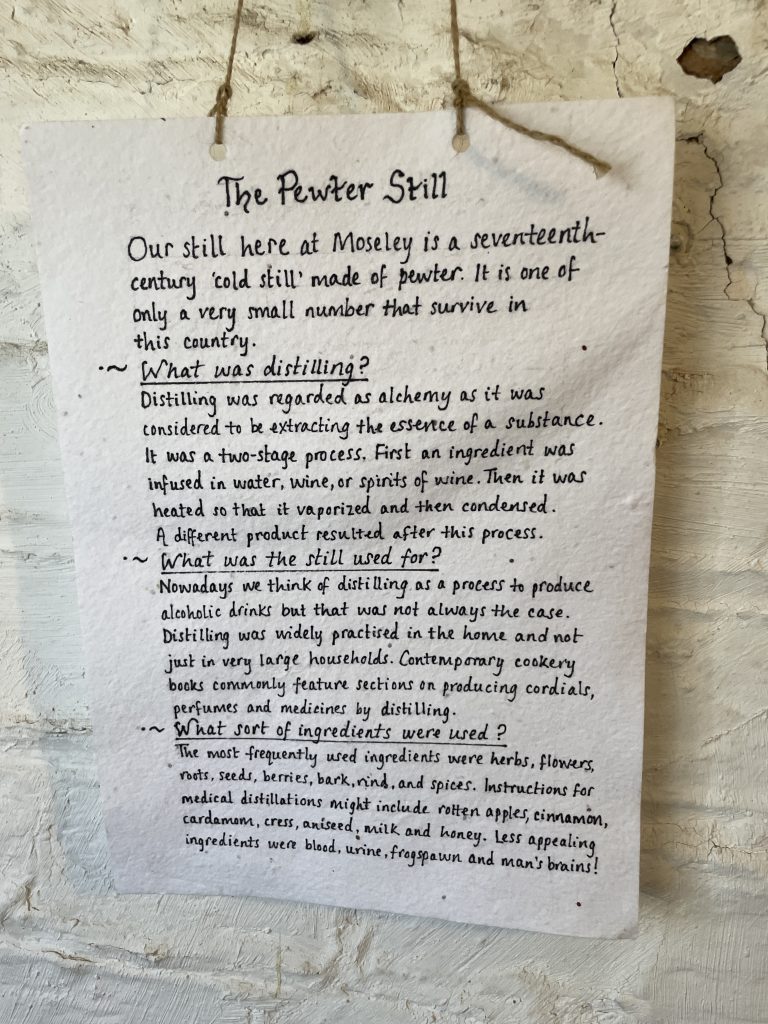 The Pewter Still
Our still here at Moseley is a seventeenth-
century 'cold still' made of pewter. It is one of
only a very small number that survive in
this country.
What was distilling?
Distilling was regarded as alchemy as it was
considered to be extracting the essence of a substance.
It was a two-stage process. First an ingredient was
infused in water, wine, or spirits of wine. Then it was
heated so that it vaporized and then condensed.
A different product resulted after this process.
What was the still used for?
Nowadays we think of distilling as a process to produce
alcoholic drinks but that was not always the case.
Distilling was widely practised in the home and not
just in very large households. Contemporary cookery
books commonly feature sections on producing cordials,
perfumes and medicines by distilling.
What sort of ingredients were used?
The most frequently used ingredients were herbs, flowers,
roots, seeds, berries, bark, rind, and spices. Instructions for
medical distillations might include rotten apples, cinnamon,
cardamom, cress, aniseed, milk and honey. Less appealing
ingredients were blood, urine, frogspawn and man's brains!